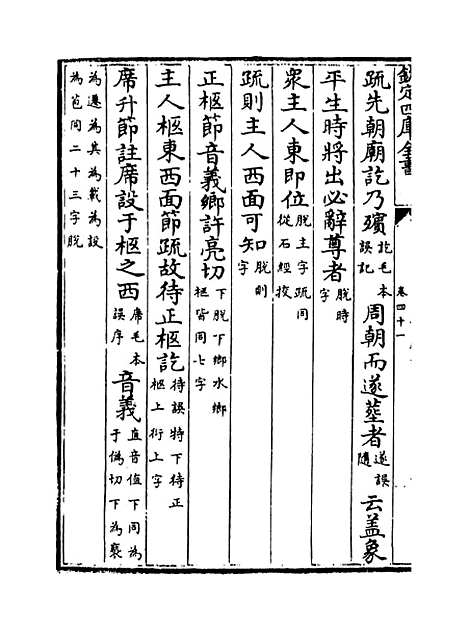 欽定四庫全書
卷四十一
疏先朝廟訖乃殯訖毛本誤記周朝而遂塟者遂誤隨云盖象
平生時將出必辭尊者脱時字
衆主人東即位脱主字疏同從石經挍
疏則主人西面可知脱則字
正柩節音義鄉許亮切下脱下鄉水鄉柩皆同七字
主人柩東西面節疏故待正柩訖待誤特下待正柩上衍上字
席升節註席設于柩之西席毛本誤序音義直音值下同為于偽切下為褻
為遷為其為載為設為苞同二十三字脱